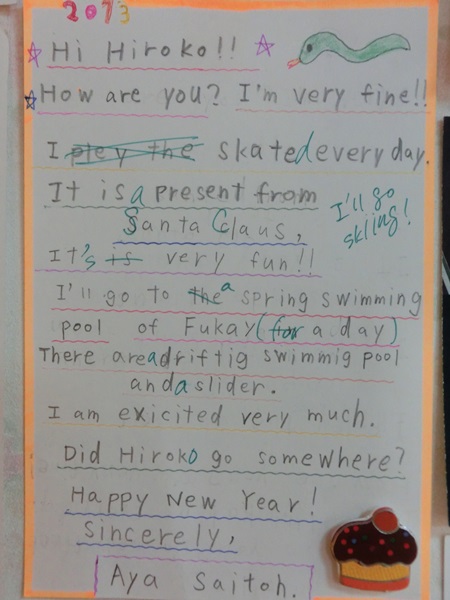 2013
Hi Hiroko!!
How are you? I'm very fine!!
I pley the skated everyday.
It is a present from
Santa Claus,
I'll go
skiing!
It's is very fun!!
I'll go to the a spring swimming
pool of Fukay (for a day)
There are a driftig swimmig pool
and a slider.
I am exicited very much.
Did Hiroko go somewhere?
Happy New Year!
Sincerely,
Aya Saitoh.